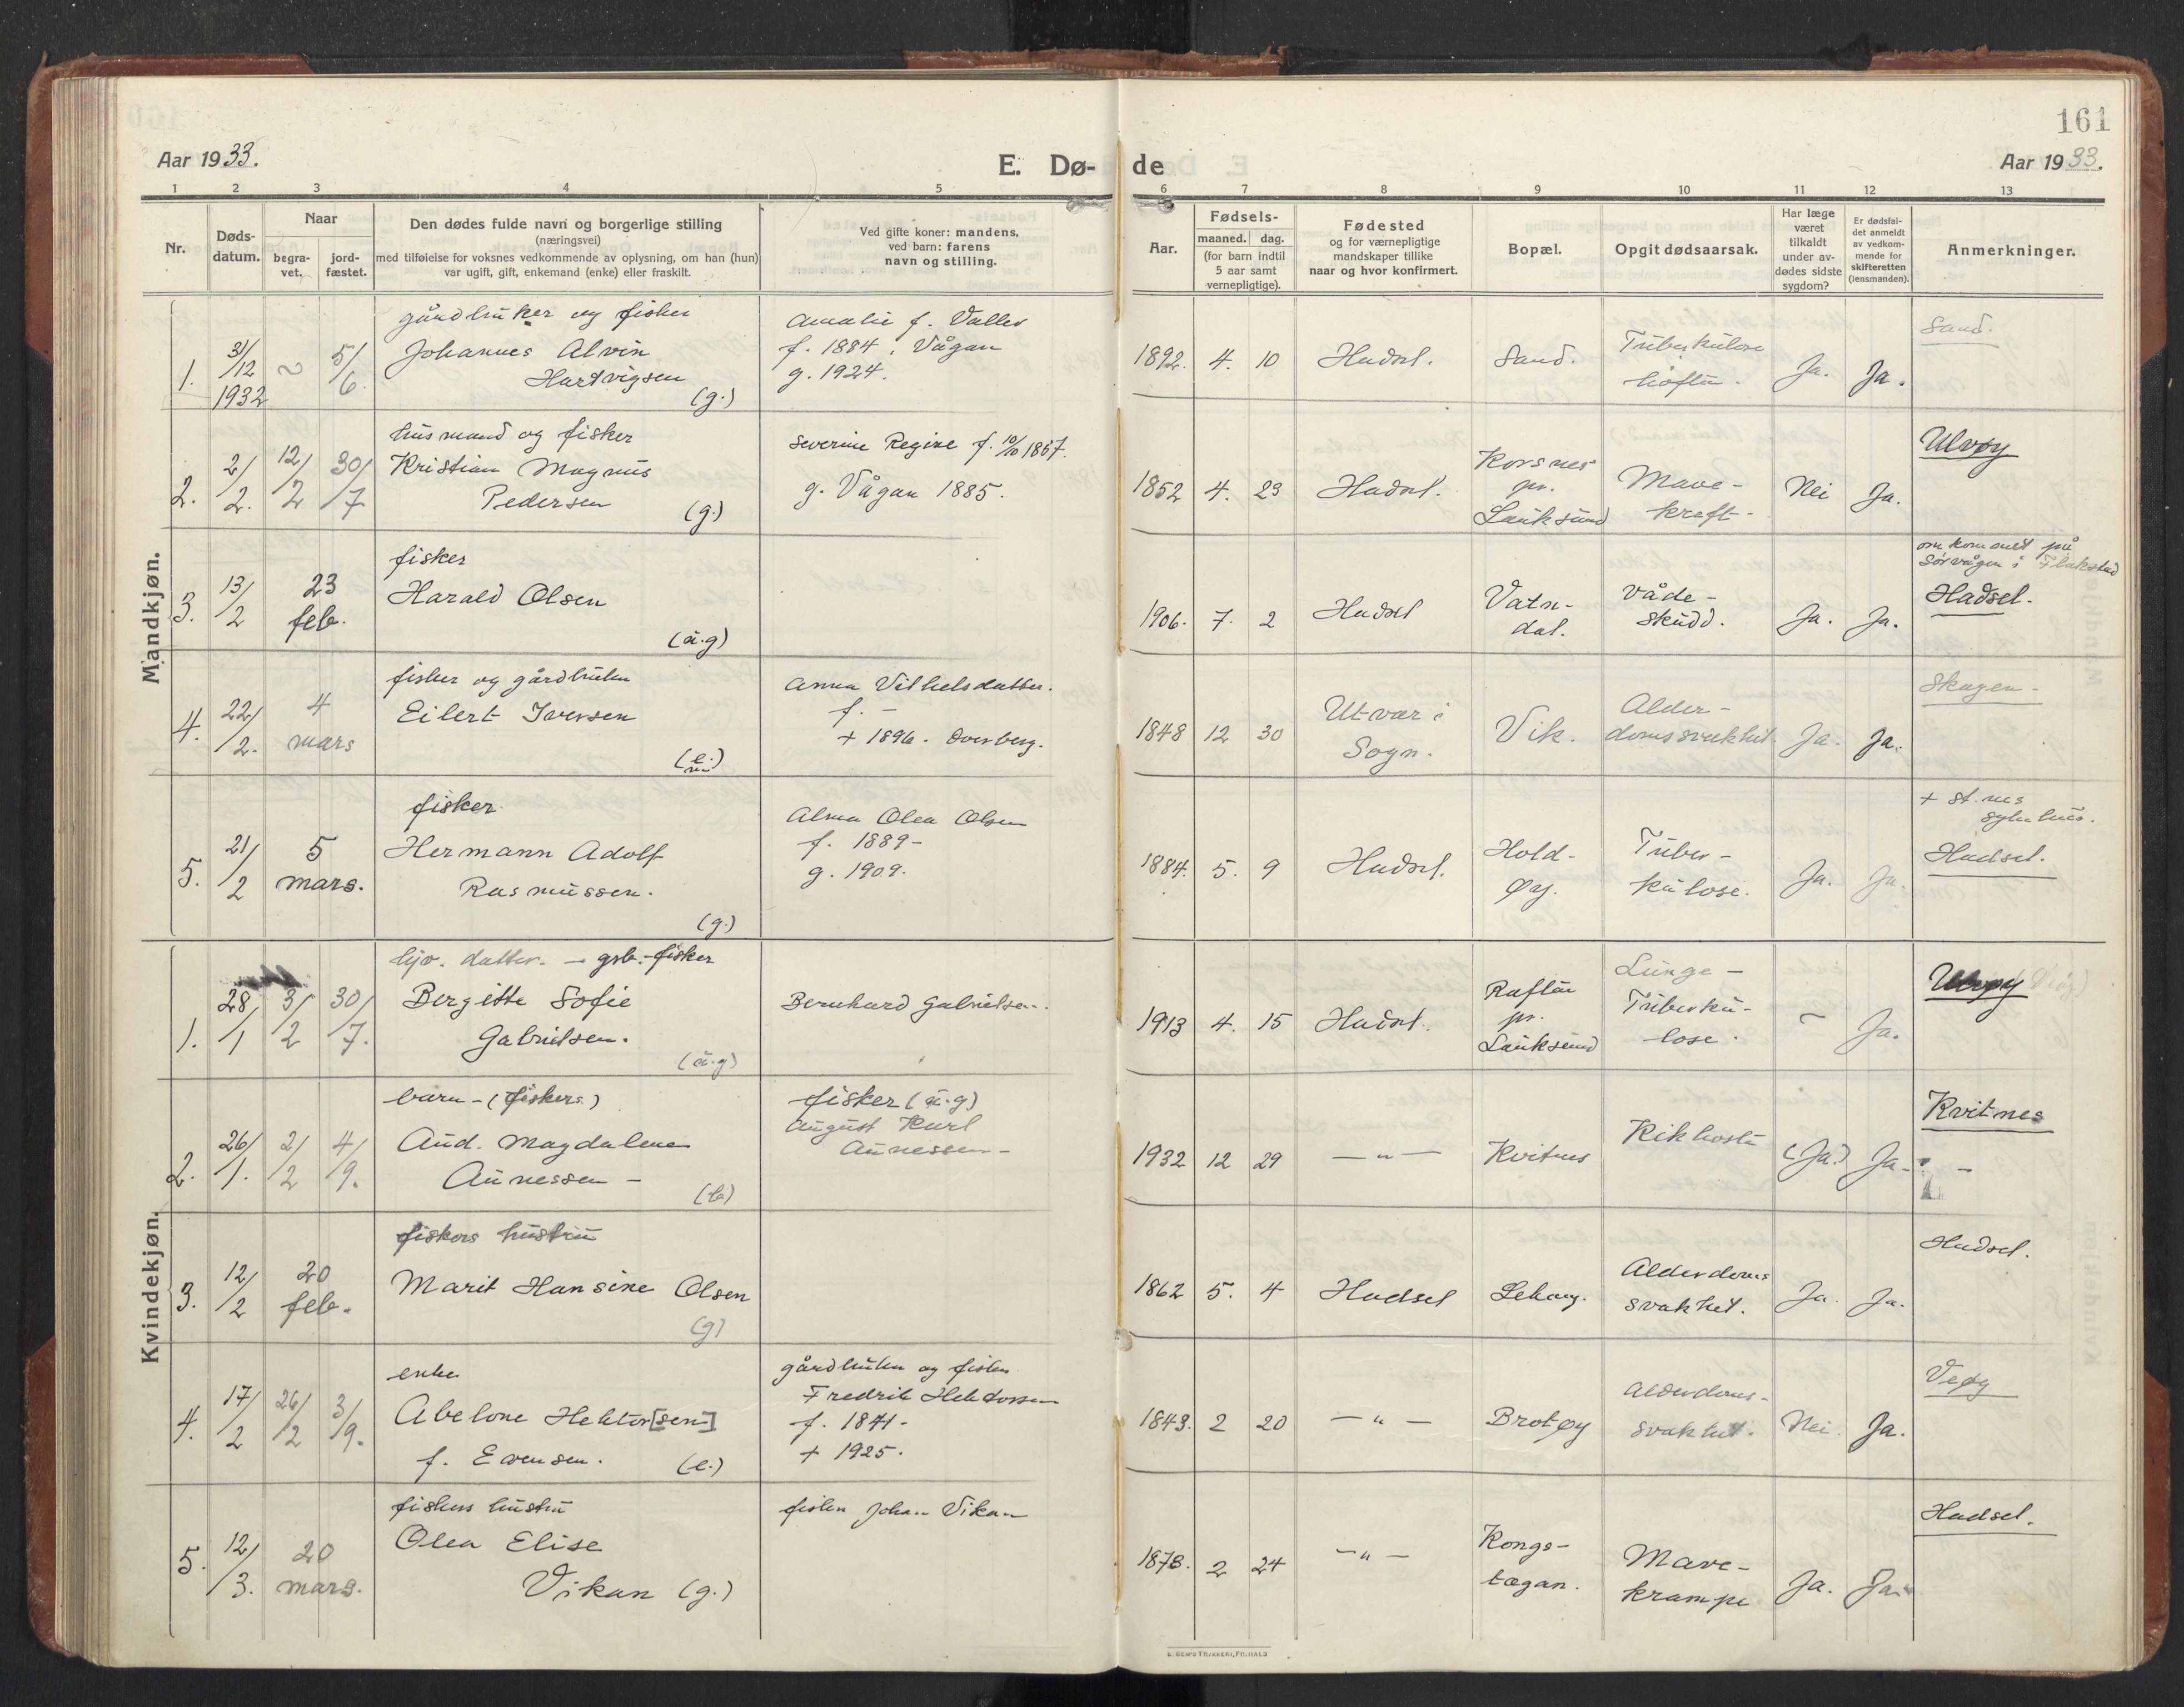 161
Aar 1933.
E. Dø-
de
Aar 1933.
1 2 3 4 5 6 7 8 9 10 11 12 13
Nr.
Døds-
datum.
Naar
begra-
vet.
jord-
fæstet.
Den dødes fulde navn og borgerlige stilling
(næringsvei)
med tilføielse for voksnes vedkommende av oplysning, om han (hun)
var ugift, gift, enkemand (enke) eller fraskilt.
Ved gifte koner: mandens,
ved barn: farens
navn og stilling.
Aar.
Fødsels-
maaned. dag.
(for barn indtil
5 aar samt
vernepligtige).
Fødested
og for værnepligtige
mandskaper tillike
naar og hvor konfirmert.
Bopæl.
Opgit dødsaarsak.
Har læge
været
tilkaldt
under av-
dødes sidste
sygdom?
Er dødsfal-
det anmeldt
av vedkom-
mende for
skifteretten
(lensmanden).
Anmerkninger.
Mandkjøn.
1.
31/12
1932
~
5/6.
gårdbruker og fisker
Johannes Alvin
Hartvigsen
(g.)
Amalie f. Valler
f. 1884, Vågan
g. 1924.
1892. 4. 10
Hadsel.
Sand.
Tuberkulose
hoften.
Ja.
Ja.
Sand.
2.
2/2.
12/2
30/7
husmand og fisker
Kristian Magnus
Pedersen
(g.)
Severine Regine f. 10/10 1867.
g. Vågan 1885.
1852 4. 23
Hadsel.
Korsnes
pr.
Lauksund
Mave-
kreft-
Nei
Ja.
Ulvøy
3.
13/2
23
feb.
fisker
Harald Olsen
(u.g)
1906. 7. 2
Hadsel
Vatn-
dal.
Våde-
skudd.
Ja.
Ja.
omkommet på
Sørvågen i Flakstad
Hadsel.
4.
22/2.
4
mars
fisker og gårdbruker
Eilert Iversen
(e.)
m
Anna Vilhelsdatter.
f. -
+ 1896. Oversberg.
1848 12 30
Utvær i
Sogn.
Vik.
Alder-
domssvakhet.
Ja.
Ja.
Skagen-
5.
21/2
5
mars.
fisker
Hermann Adolf
Rasmussen.
(g.)
Alma Olea Olsen
f. 1889-
g. 1909.
1884. 5. 9
Hadsel.
Hold-
øy.
Tuber-
kulose.
Ja.
Ja.
+ St.nes
sykehus.
Hadsel.
Kvindekjøn.
1.
28/1
3/2
30/7.
hjv. datter. - grb.-fisker
Bergitte Sofie
Gabrielsen.
(u.g)
Bernhard Gabrielsen.
1913 4. 15
Hadsel.
Raften
pr.
Lauksund
Lunge-
Tuberku-
lose.
~
Ja.
Ulvøy
2.
26/1.
2/2
4/9.
barn-(fiskers)
Aud. Magdalene
Aunessen -
(b)
fisker (u.g)
August Karl
Aunessen-
1932 12 29
-"-
Kvitnes
Kikhoste
(Ja.)
Ja-
Kvitnes
-
3.
12/2
20
feb.
fiskers hustru
Marit Hansine Olsen
(g)
1862 5. 4
Hadsel
Lekang.
Alderdoms
svakhet.
Ja.
Ja.
Hadsel.
4.
17/2
26/2
3/9.
enke
Abelone Hektor[sen]
f. Evensen.
(e.)
gårdbruker og fisker
Fredrik Hektorsen
f. 1841-
+ 1925.
1843. 2 20
-"-
Brotøy
Alderdoms-
svakhet.
Nei.
Ja.
Veøy
5.
12/3.
20
mars.
fiskers hustru
Olea Elise
Vikan (g.)
fisker Johan Vikan
1878. 2 24
-"-
Kongs-
tægan.
Mave-
krampe
Ja.
Ja.
Hadsel.